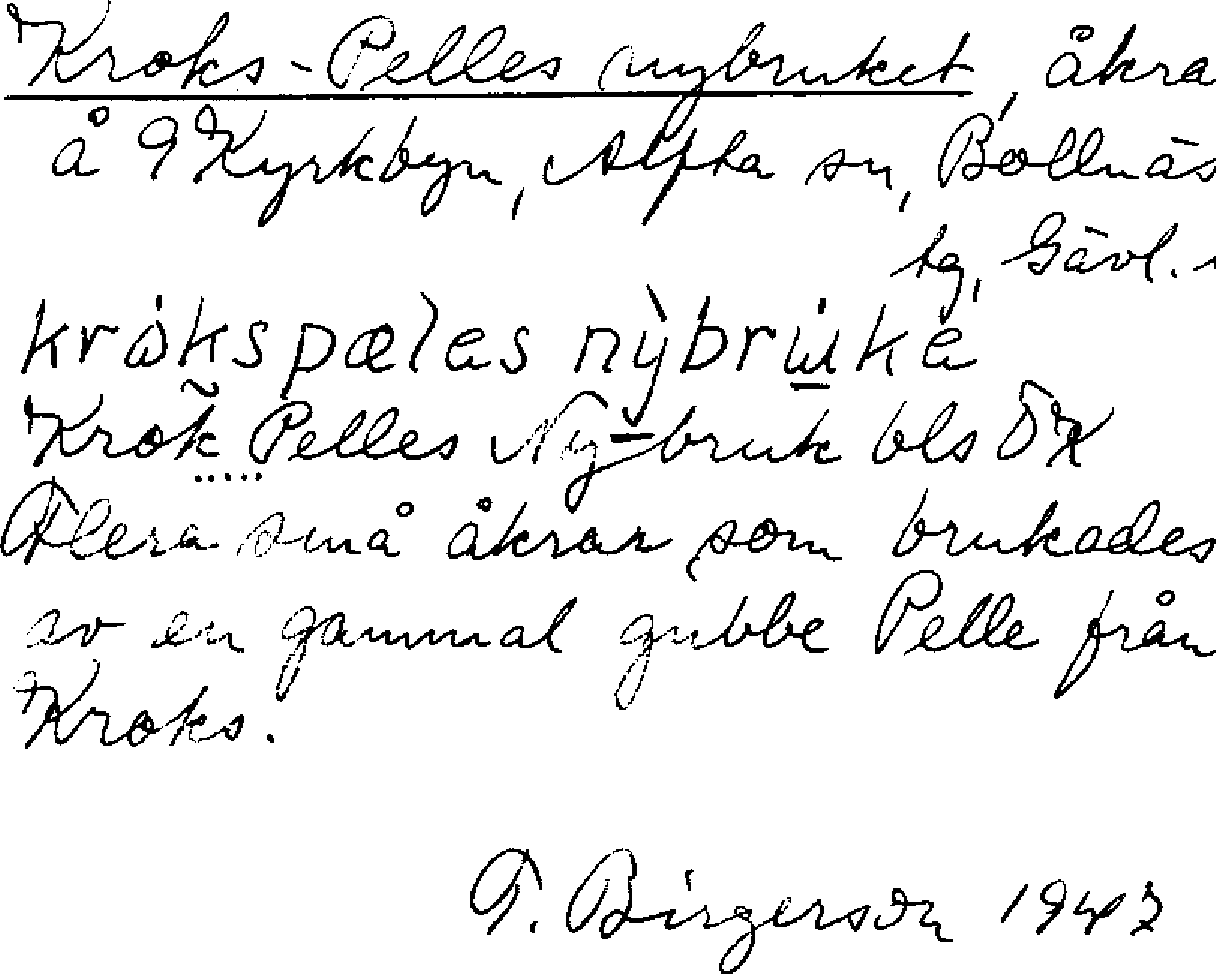 Kroks-Pelles nybruket, åkra
å 9 Kyrkbyn, Alfta sn, Bollnäs
tg, Gävl.
kròkspæles nỳbrùke
Krok Pelles Ny-bruk bls ÖK
Flera små åkrar som brukades
av en gammal gubbe Pelle från
Kroks.
F. Birgerson 1947